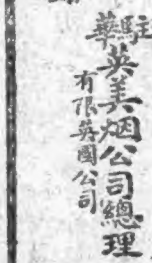 駐華
英美烟公司總理
有限英國公司